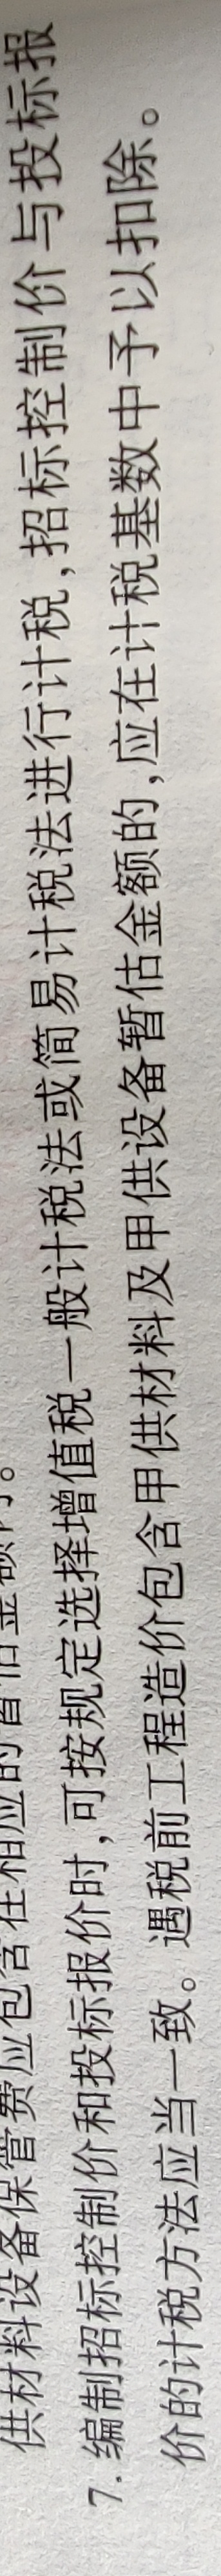 供材料设备保管费应包含在相应的暂估金额内。
7. 编制招标控制价和投标报价时,可按规定选择增值税一般计税法或简易计税法进行计税,招标控制价与投标报
价的计税方法应当一致。遇税前工程造价包含甲供材料及甲供设备暂估金额的,应在计税基数中予以扣除。